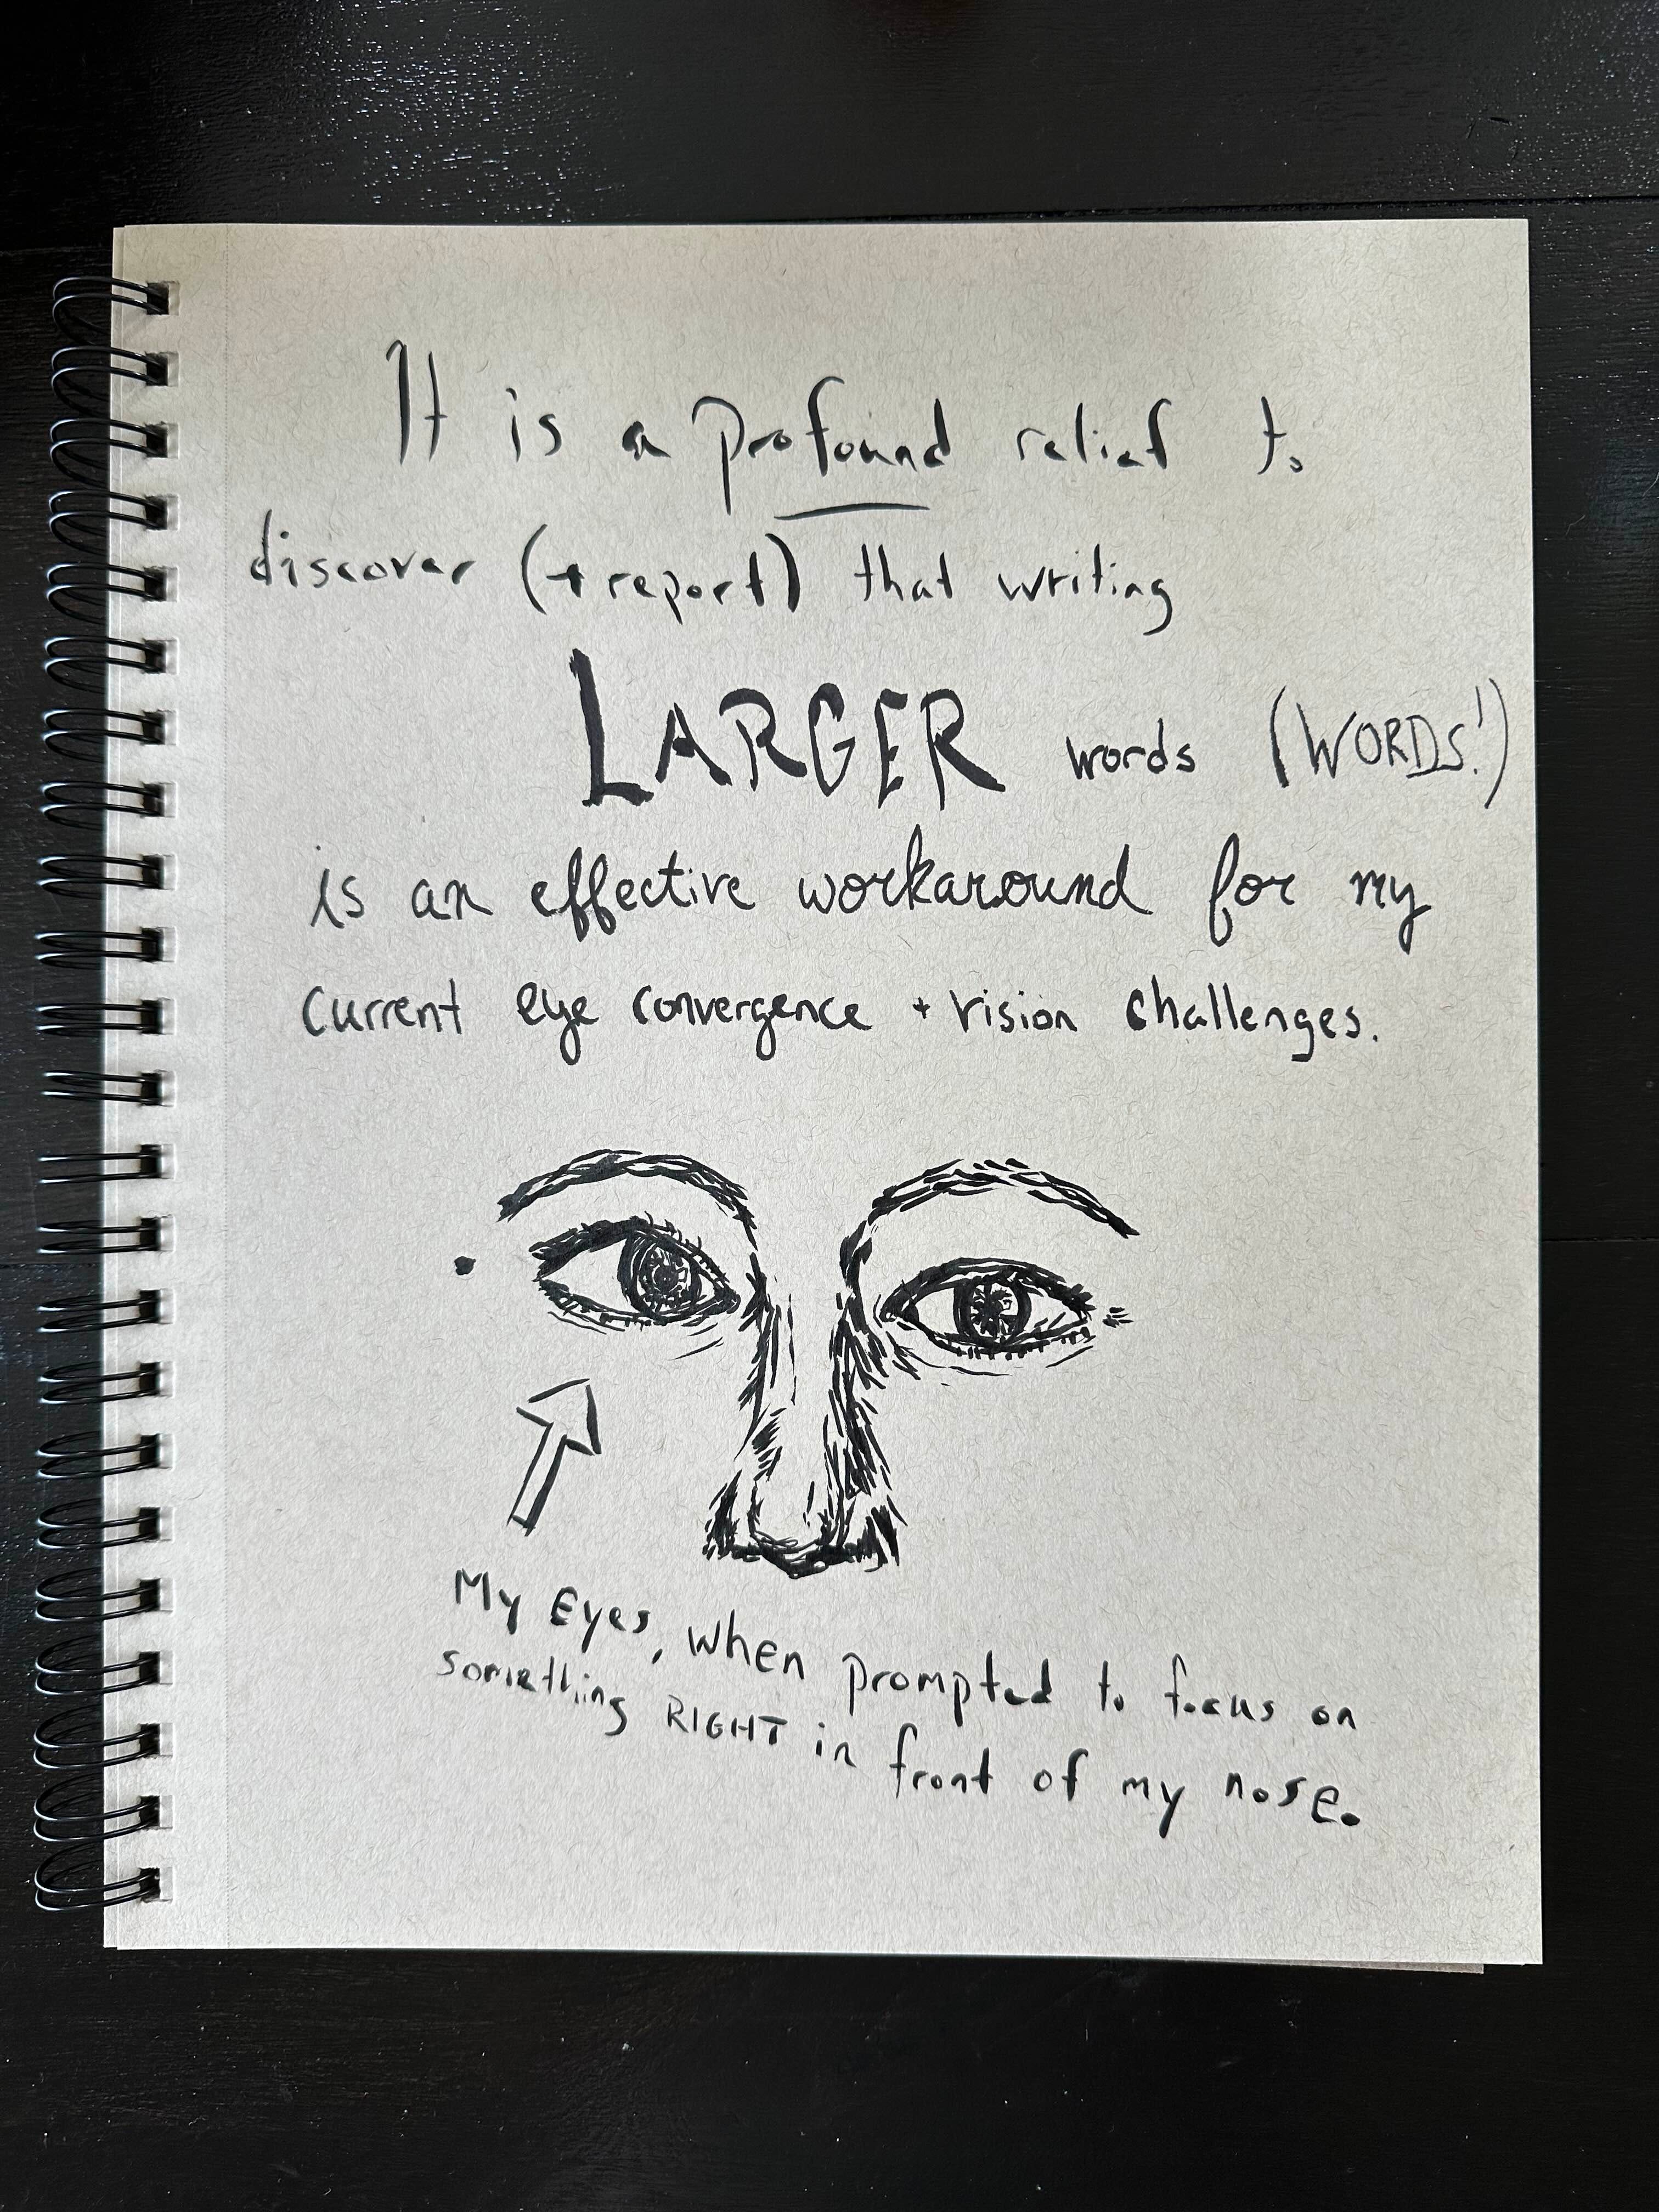 It is a profound relief to
discover (+ report) that writing
LARGER words (WORDS!)
is an effective workaround for my
current eye convergence + vision challenges.
My Eyes, when prompted to focus on
something RIGHT in front of my nose.